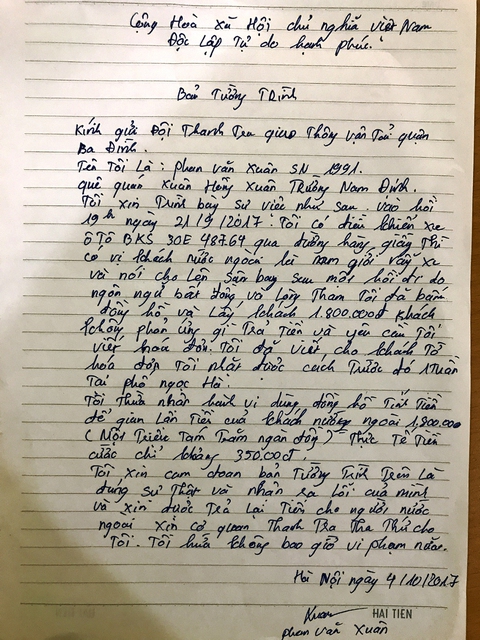 Cộng Hoà Xã Hội chủ nghĩa việt Nam
Độc Lập Tự do hạnh phúc.
Bản Tường Trình
Kính gửi Đội Thanh Tra giao Thông vận Tải quận
Ba Đình.
Tên Tôi Là : phan văn Xuân SN 1991.
quê quan Xuân Hồng Xuân Trường Nam Định.
Tôi xin Trình bày sự việc như sau vào hồi
19h ngày 21/9/2017. Tôi có điều khiển xe
ô Tô BKS 30E 48764 qua đường hàng giầy Thì
có vị khách nước ngoài là nam giới vẫy xe
và nói cho Lên Sân bay sau một hồi đi do
ngôn ngữ bất đồng và Lòng Tham Tôi đã bấm
đồng hồ và Lấy khách 1.800.000đ khách
không phản ứng gì Trả Tiền và yêu cầu Tôi
viết hoá đơn. Tôi đã viết cho khách Tờ
hoá đơn Tôi nhặt được cách Trước đó 1 Tuần
Tại phố ngọc Hà.
Tôi Thừa nhận hành vi dùng đồng hồ Tính Tiền
để gian Lận Tiền của khách nước ngoài 1,800,000
( Một Triệu Tam Trăm ngàn đồng ) Thực Tế Tiền
cước chỉ khảng 350.000đ.
Tôi xin cam đoan bản Tường Trình Trên Là
đúng sự Thật và nhận ra Lỗi của mình
và xin được Trả Lại Tiền cho người nước
ngoài xin cơ quan Thanh Tra Tha Thứ cho
Tôi. Tôi hứa không bao giờ vi phạm nữa.
Hà Nội ngày 4/10/2017
Xuân
HAI TIEN
phan văn Xuân